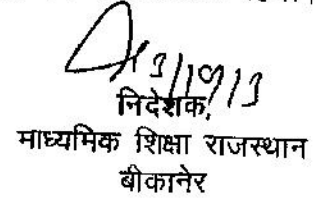 निदेशक,
माध्यमिक शिक्षा राजस्थान
बीकानेर